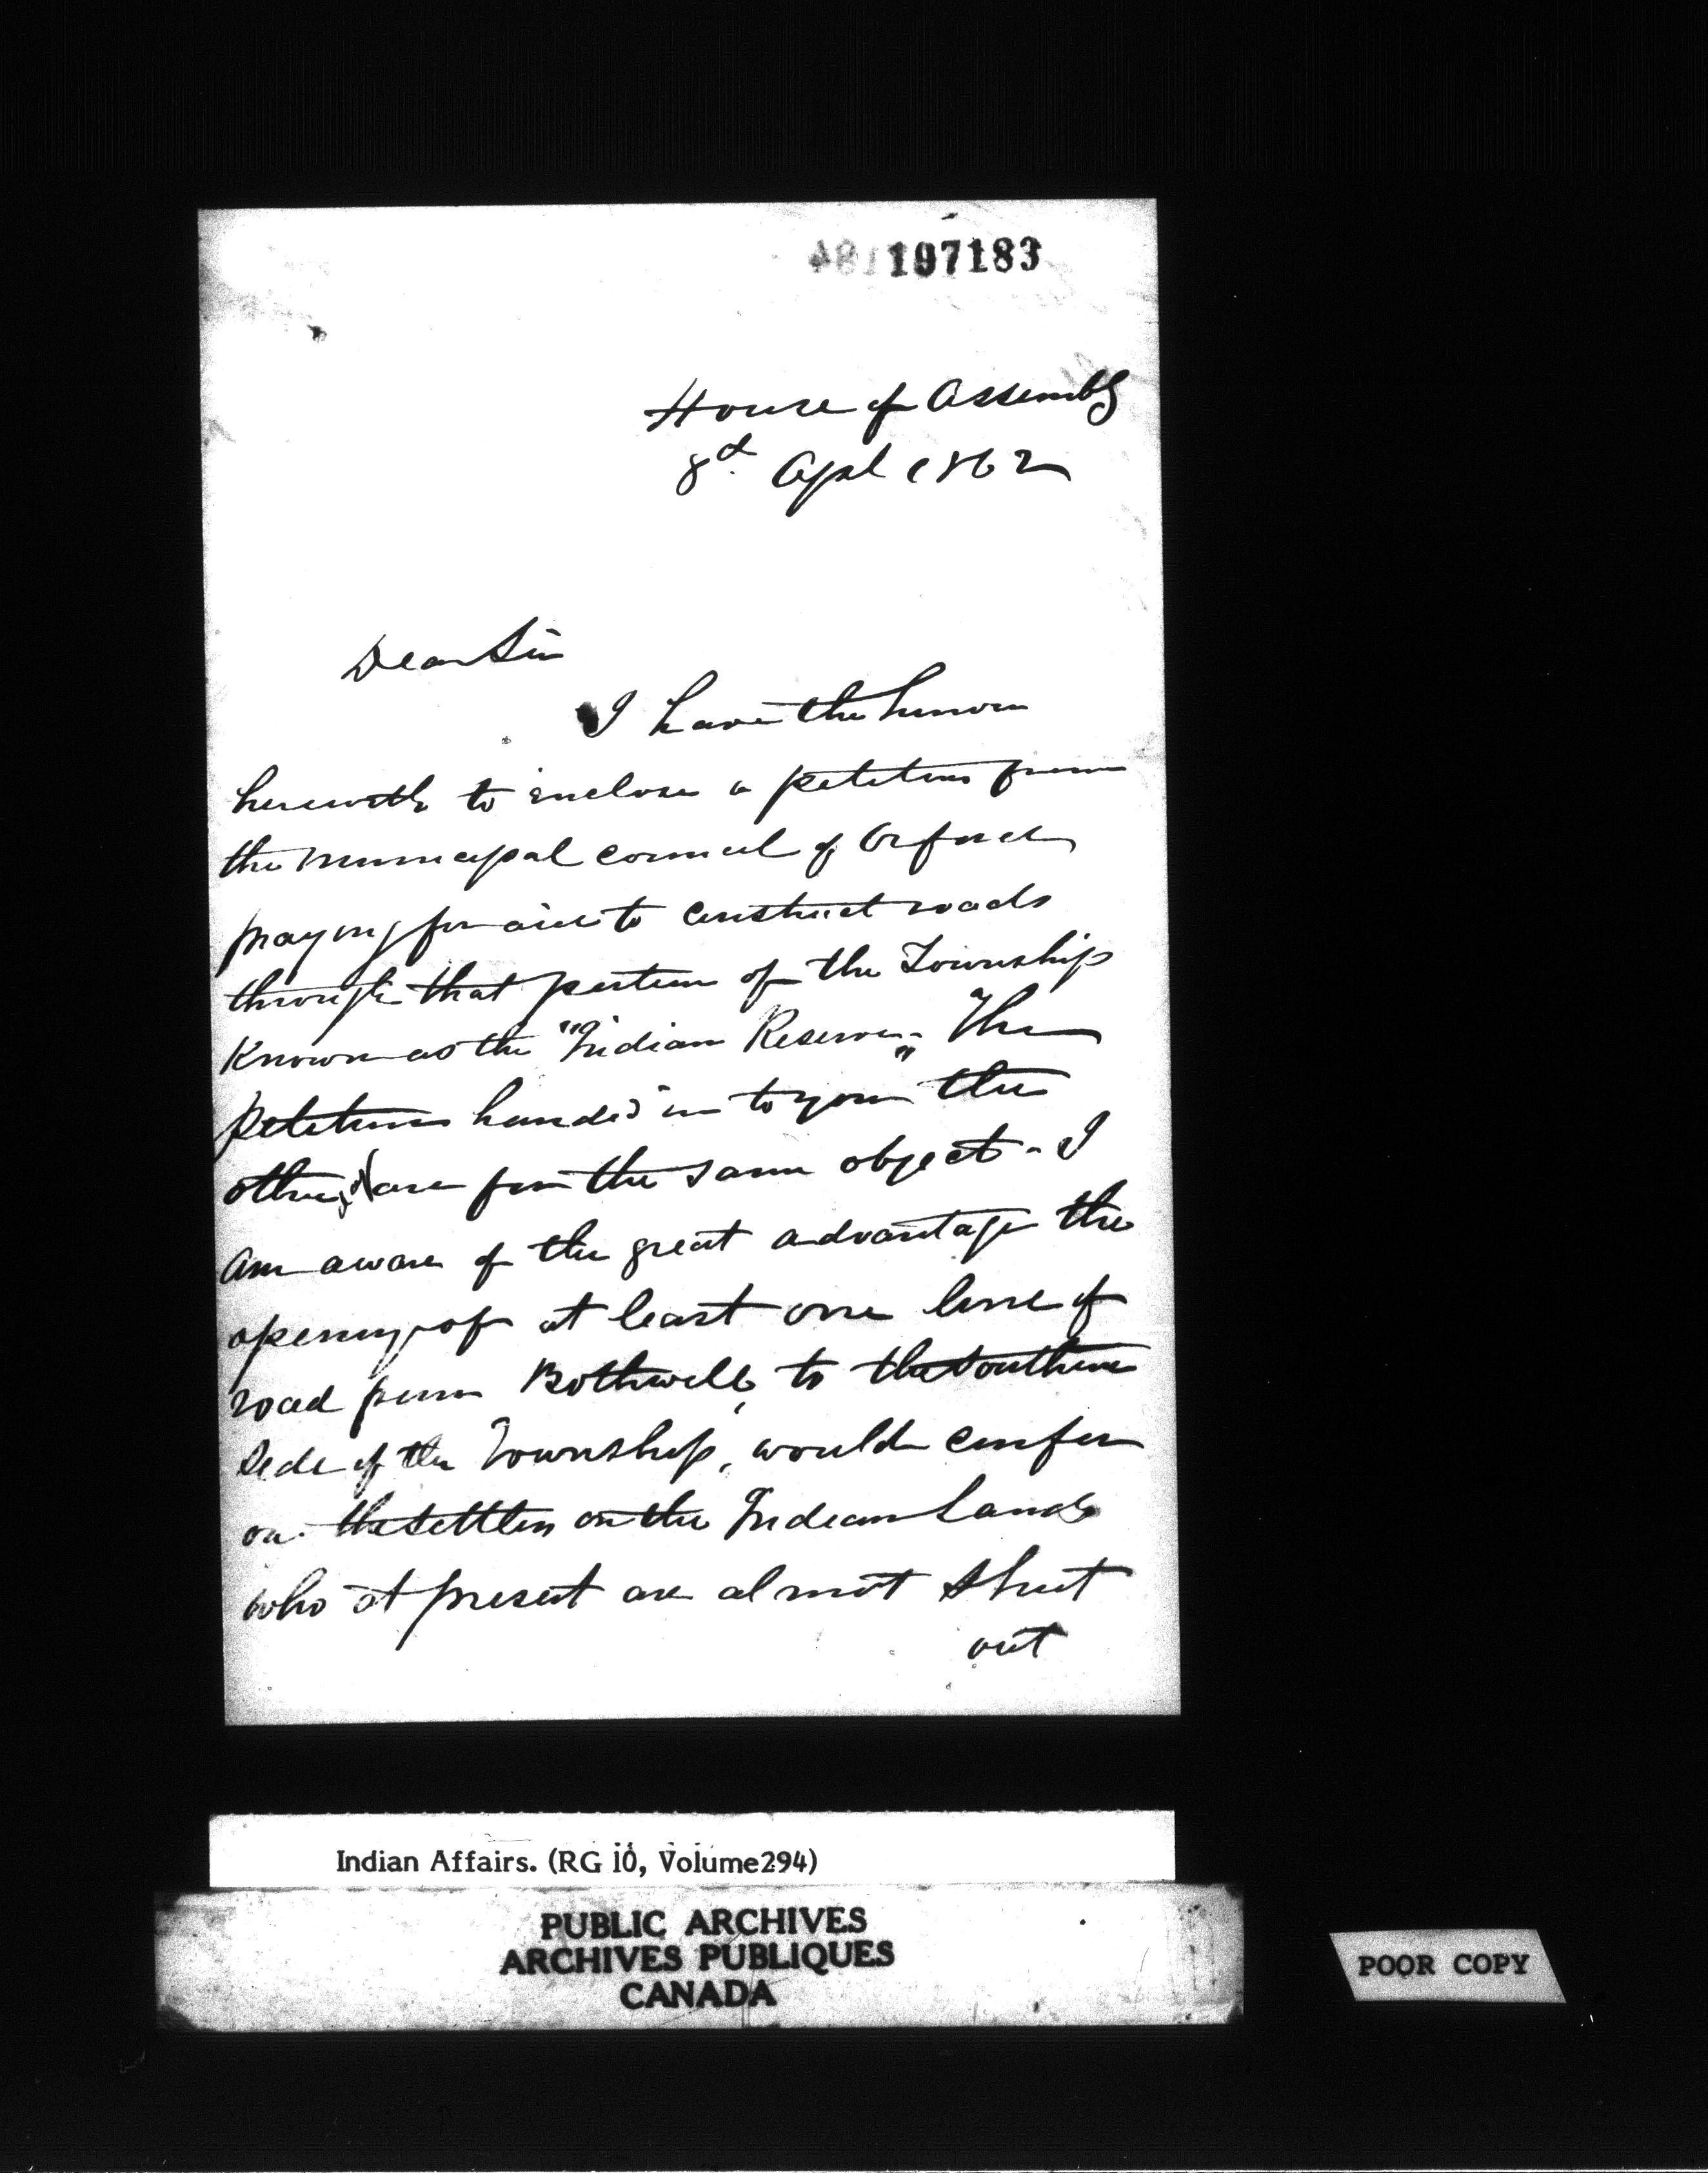 197183
House of Assembly
8d. Apl 1862
Dear Sir
I have the honor
herewith to enclose a petition from
the Municipal Council of Orford
praying for aid to construct roads
through that portion of the Township
Known as the "Indian Reserve" The
petitions handed in to you the
other are for the same object - I
am aware of the great advantage the
opening of at least one line of
road from Bothwell, to the Southern
Side of the Township, would confer
on the Settlers on the Indian Lands
who at present are almost shut
out
Indian Affairs. (RG 10, Volume294)
PUBLIC ARCHIVES
ARCHIVES PUBLIQUES
CANADA
POOR COPY